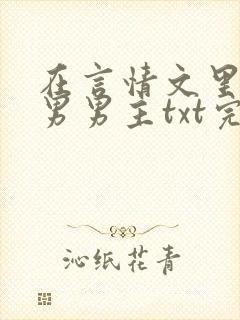 在言情文里
男男主txt完
沁纸花青